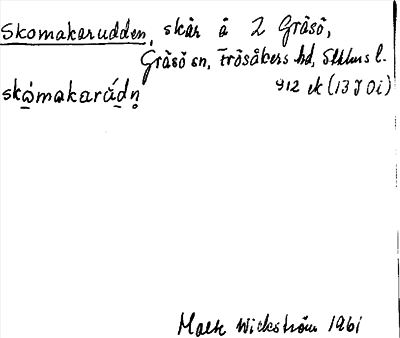 Skomakarudden, skär å 2 Gräsö,
Gräsö sn, Frösåkers hd, Sthlms l.
912 ek (13 J 0i)
skòmakarúdn̥
Mats Wickström 1961